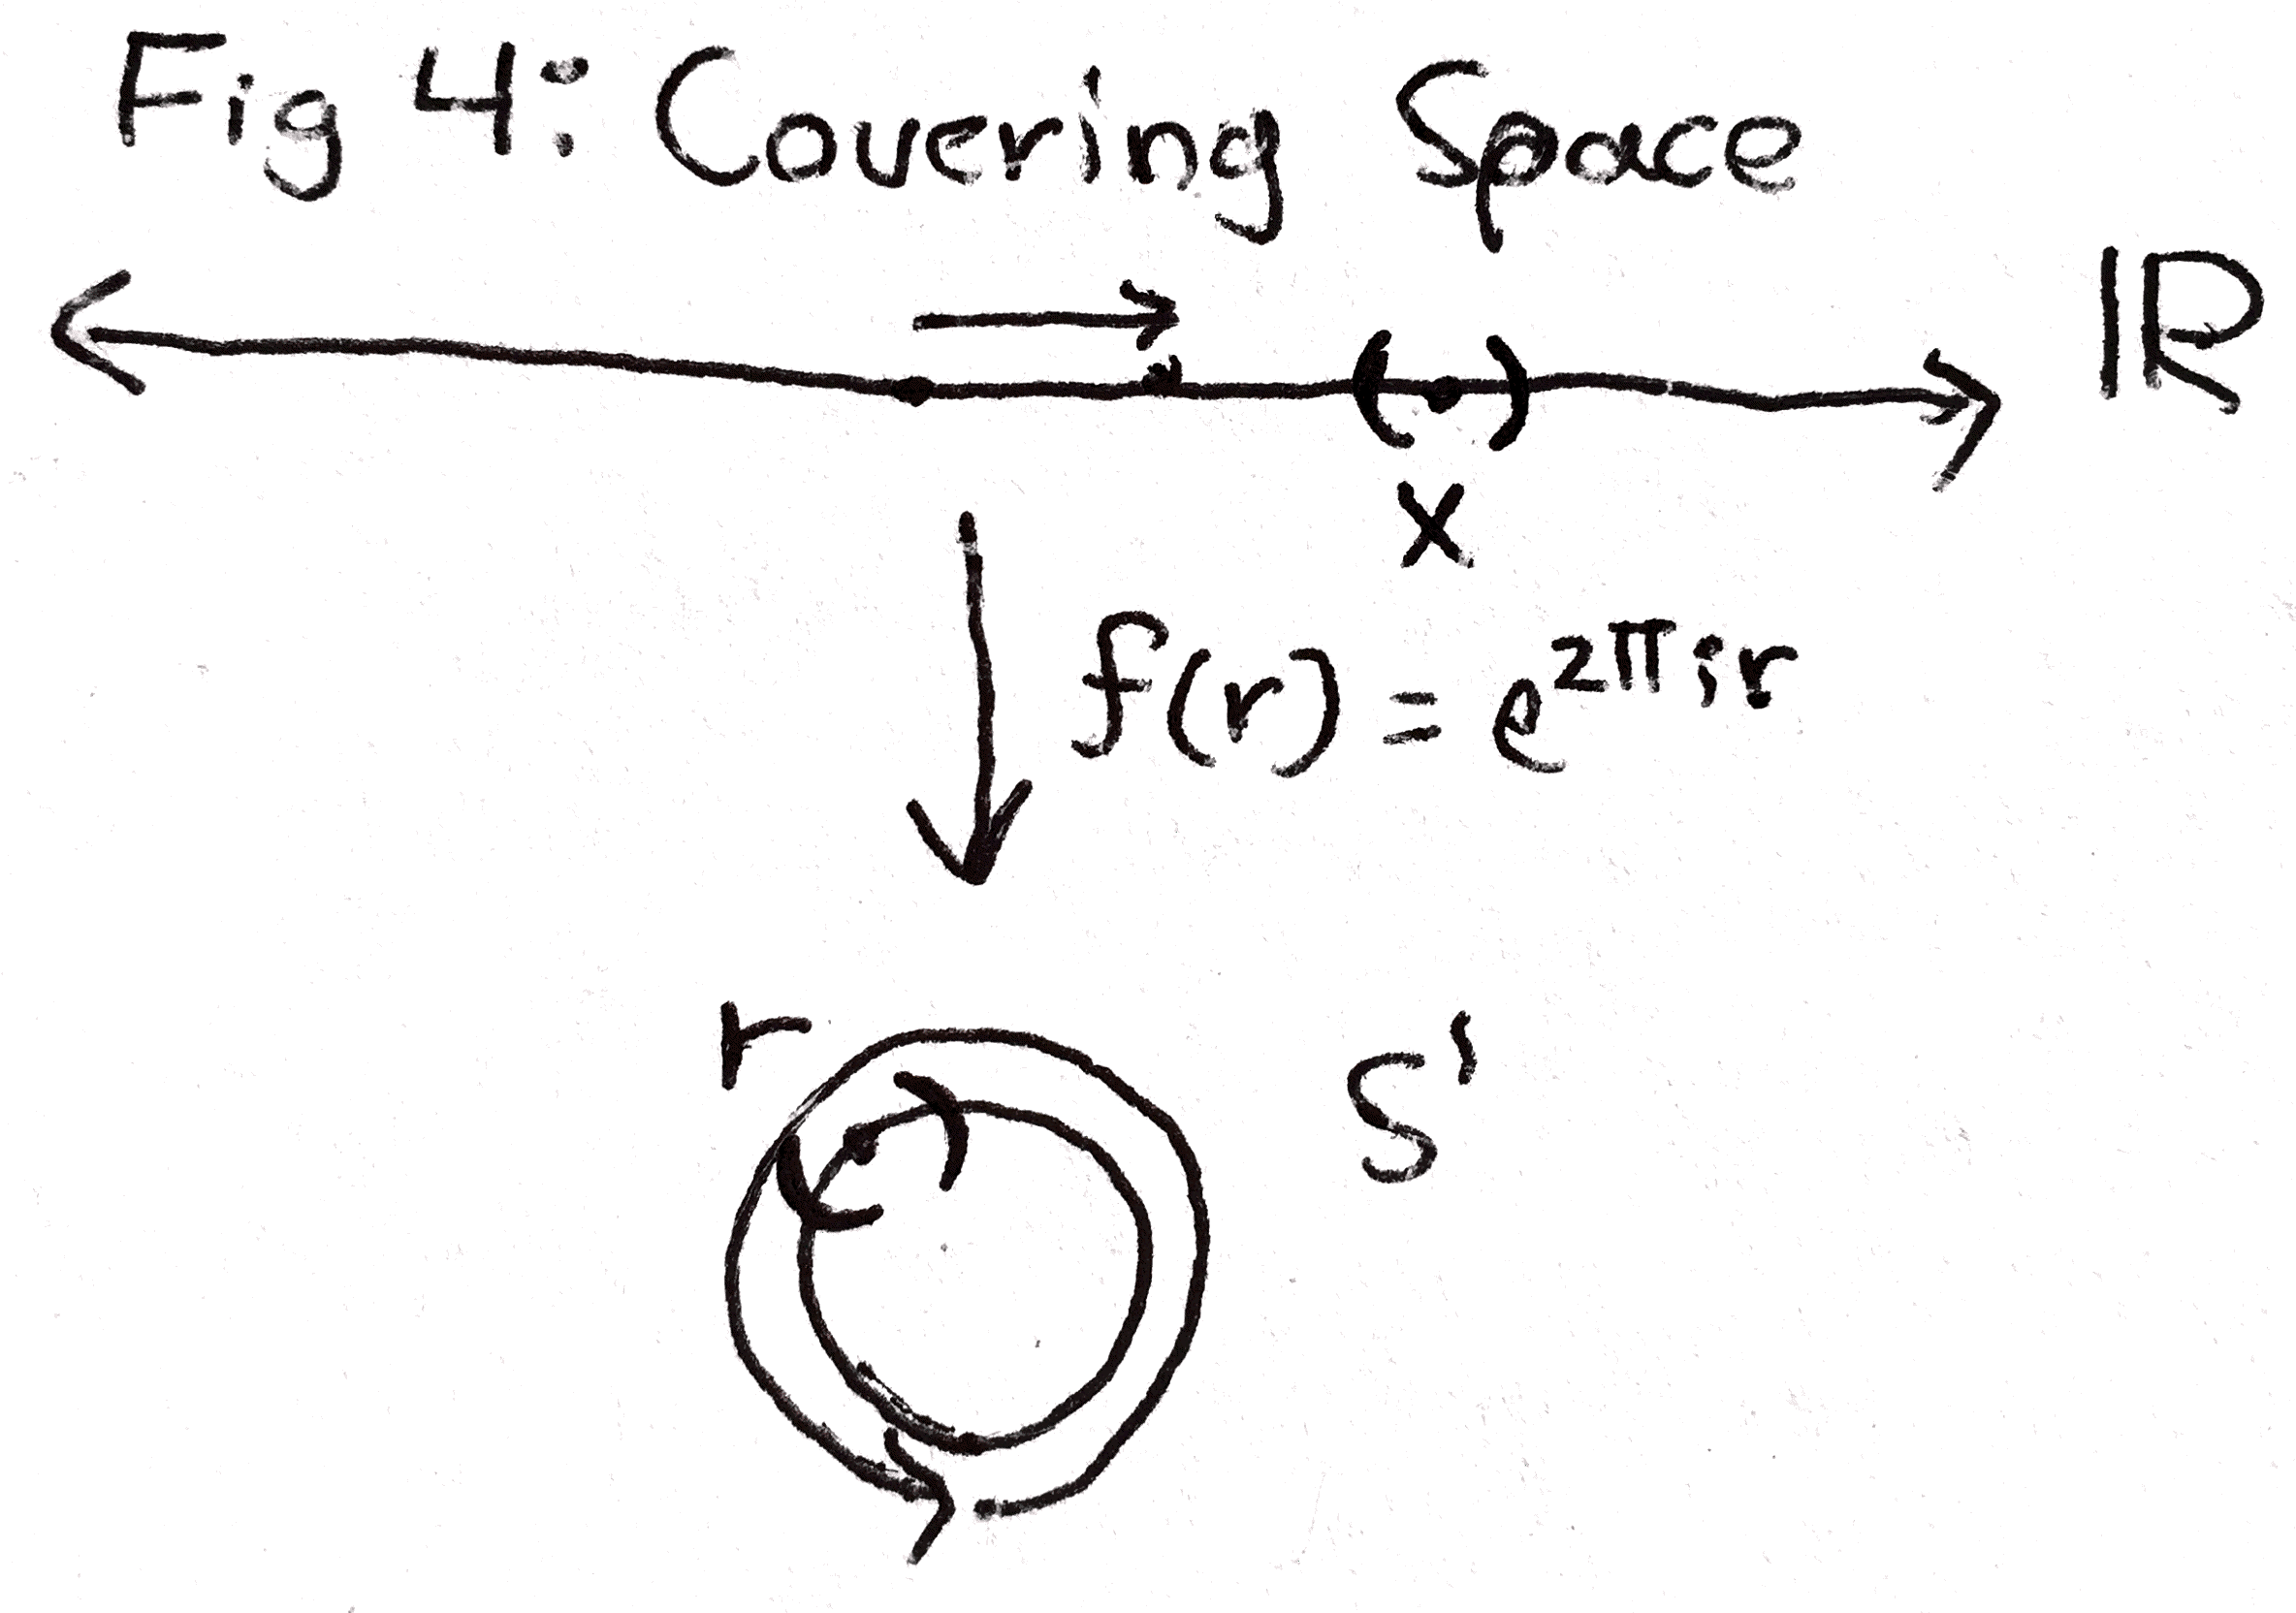 Fig 4: Covering Space
ℝ
x
f(r) = e^{2πir}
r
S¹